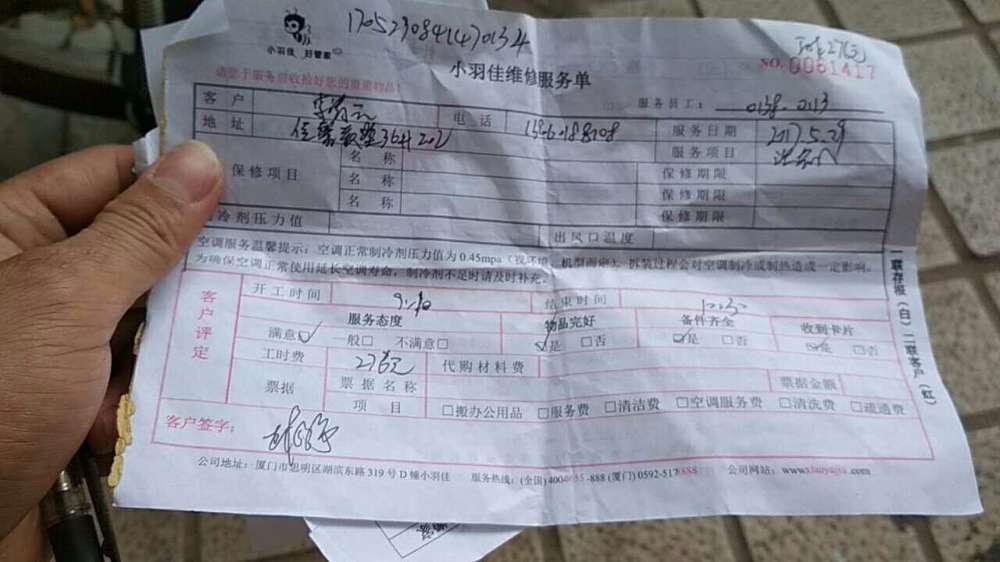 1705230841470134
小羽佳 好管家
小羽佳维修服务单
NO. 0061417
请您于服务前收拾好您的贵重物品!
服务员工: 0138.0113
客户 电话 服务日期 2017.5.29
地址 服务项目
保修项目 名称 保修期限
名称 保修期限
名称 保修期限
冷剂压力值 出风口温度
空调服务温馨提示:空调正常制冷剂压力值为 0.45mpa(视环境、机型而定)。拆装过程会对空调制冷或制热造成一定影响。
为确保空调正常使用延长空调寿命,制冷剂不足时请及时补充。
客户评定
开工时间 结束时间
服务态度 物品完好 备件齐全 收到卡片
满意☑ 一般□ 不满意□ ☑是 □否 ☑是 □否 ☑是 □否
工时费 27元 代购材料费
票据 票据名称 票据金额
项目 □搬办公用品 □服务费 □清洁费 □空调服务费 □清洗费 □疏通费
客户签字:
公司地址:厦门市思明区湖滨东路 319 号 D 幢小羽佳 服务热线:(全国) 4004655-888 (厦门) 0592-5178888 公司网站:www.xiaoyujia.com
一联存根(白)二联客户(红)